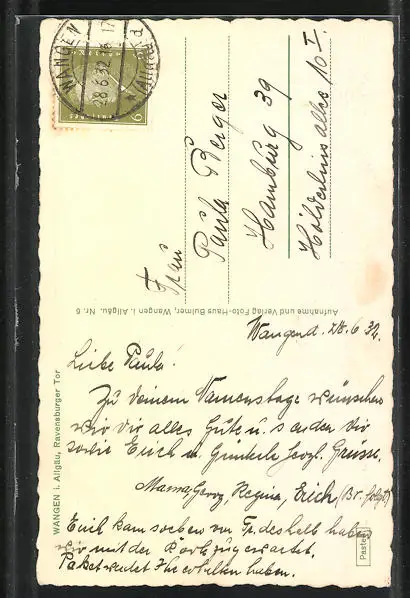 WANGEN
28.6.32.
(Allgäu)
Frau
Paula Berger
Hamburg 39
Hölderlinsallee 10 I.
Aufnahme und Verlag Foto-Haus Bulmer, Wangen i. Allgäu. Nr. 6
WANGEN i. Allgäu, Ravensburger Tor
Wangen d. 28.6.32.
Liebe Paula!
Zu deinem Namenstage wünschen
wir dir alles Gute u. senden dir
sowie Erich u. Günterle herzl. Grüsse.
Mama, Georg, Regina, Erich, (Br. folgt)
Emil kam soeben von Fr. deshalb haben
wir mit der Post zugewartet.
Paket werdet Ihr erhalten haben.